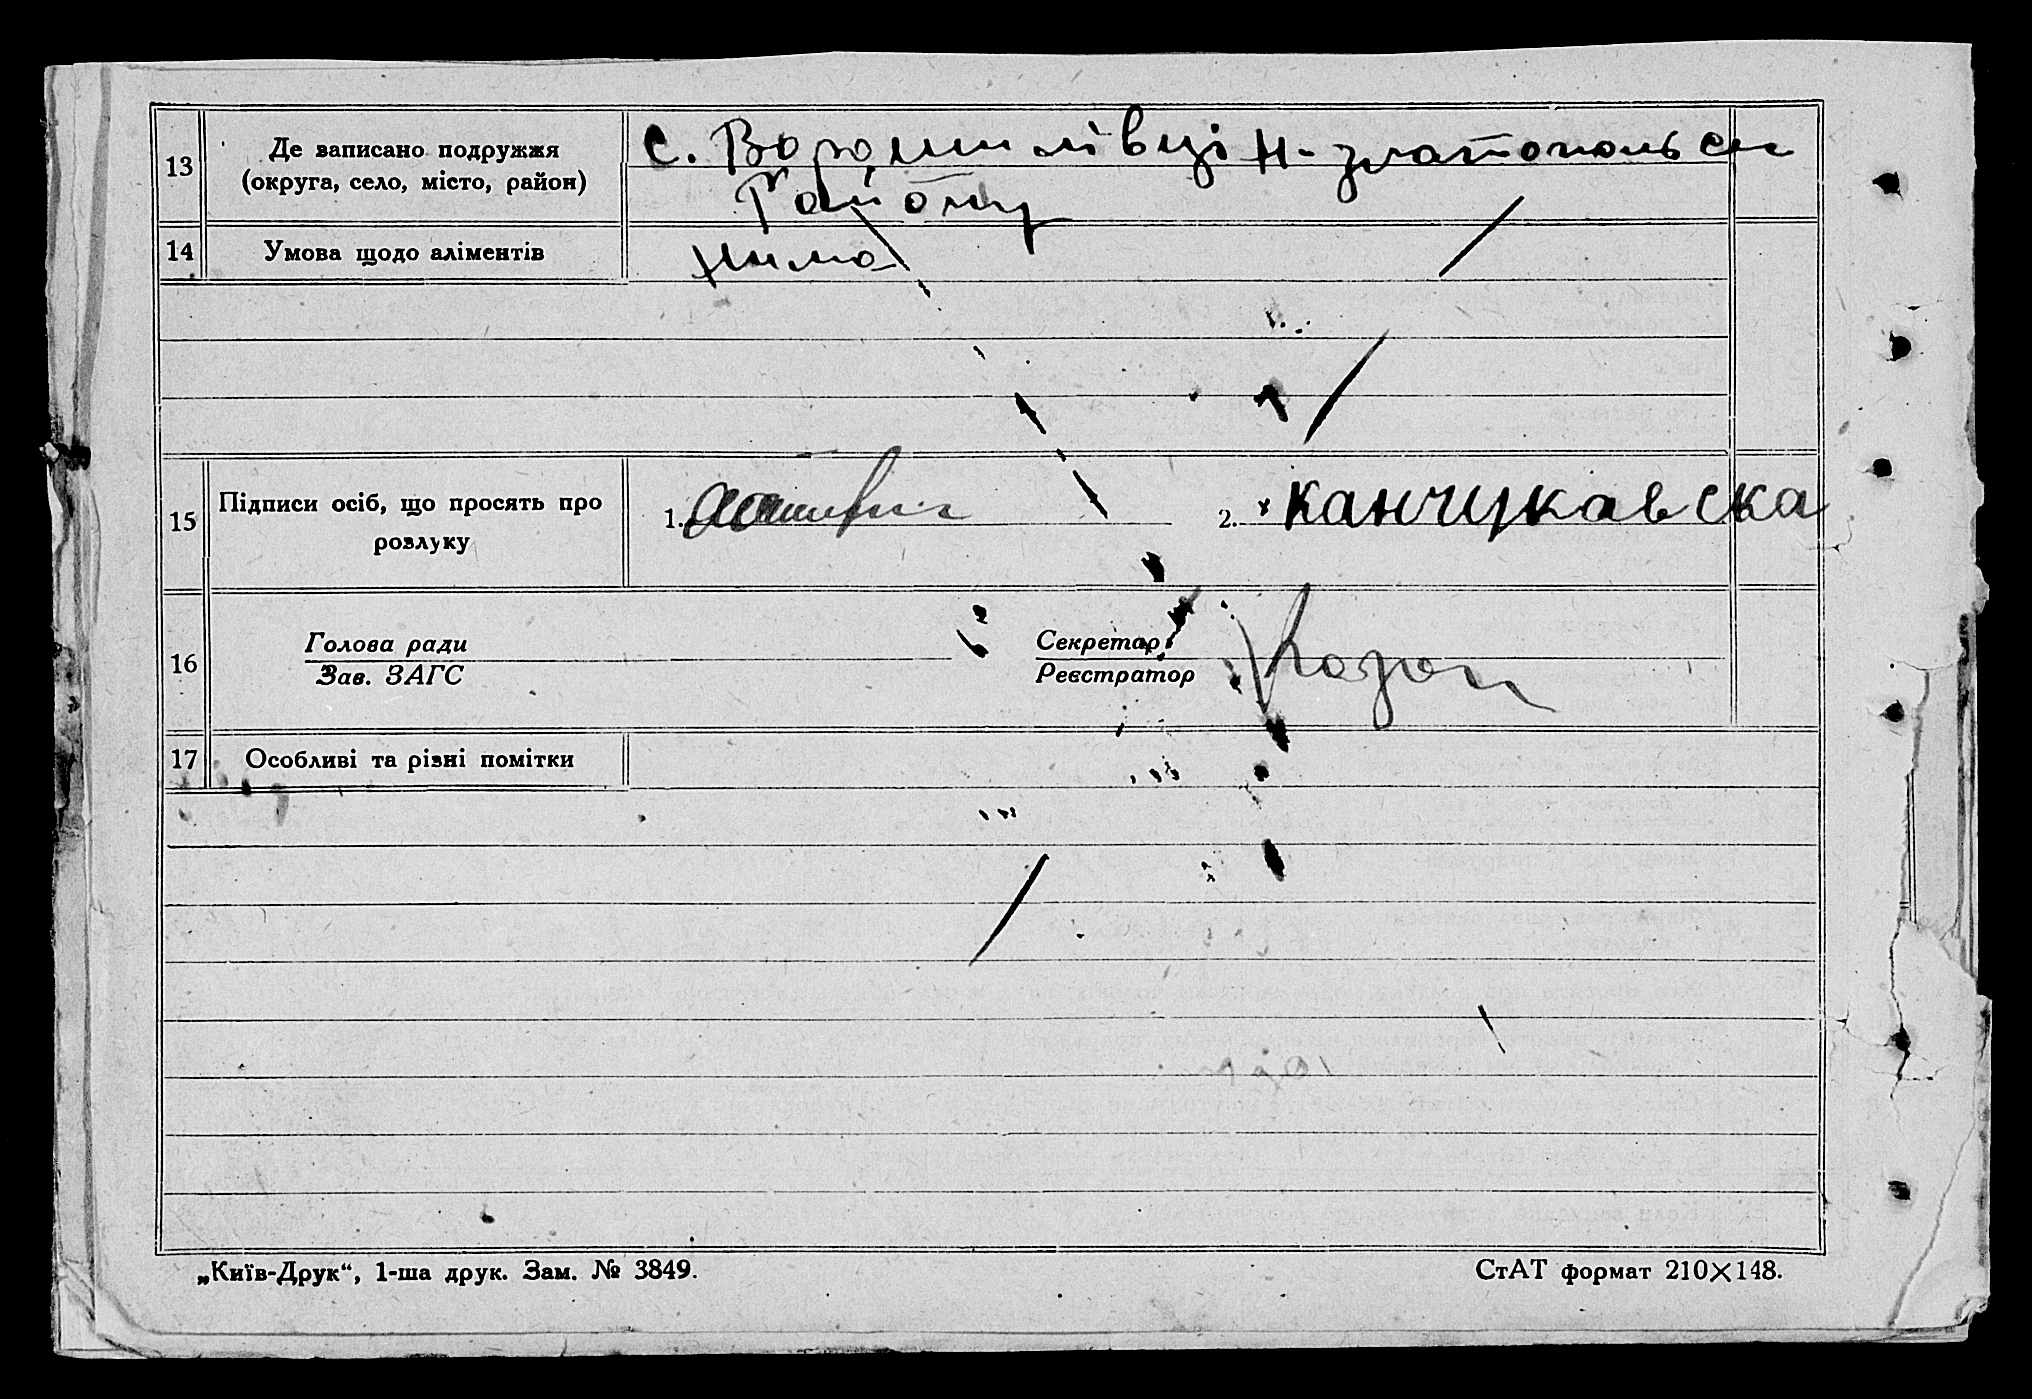 13 Де записано подружжя
(округа, село, місто, район)
с. Ворошилівці Н-златопольск
Району
14 Умова щодо аліментів
Нима
15 Підписи осіб, що просять про
розлуку
1.
2. Канчукавска
16 Голова ради
Зав. ЗАГС
Секретар
Реєстратор
17 Особливі та різні помітки
„Київ-Друк“, 1-ша друк. Зам. № 3849.
СтАТ формат 210×148.